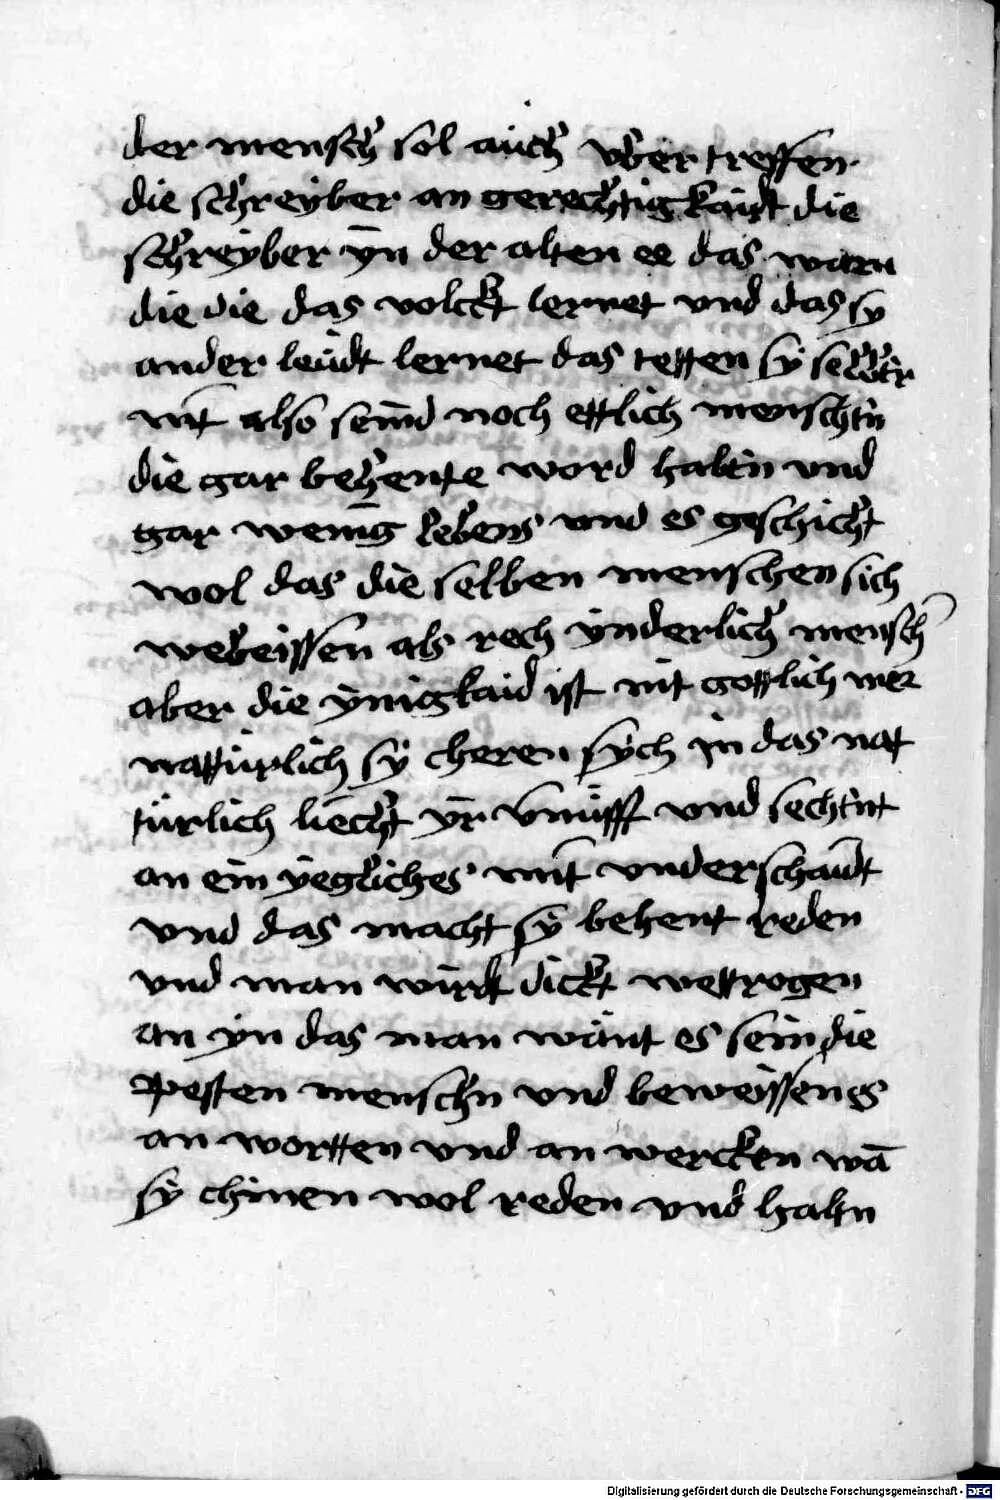 der mensch sol auch vber treffen
die schreyber an gerechtigkaidt die
schreyber yn der alten ee das warn
die die das volckt lernet vnd das sy
ander leudt lernet das tetten sy selber
nit also seind noch ettlich menschn
die gar behente word haltn vnd
gar wenig lebens vnd es geschicht
wol das die selben menschen sich
webeissen als rech ynderlich mensch
aber die ynigkaid ist nit gottlich mer
nattürlich sy cheren sych in das nat
türlich liecht yr vnufft vnd sechtnt
an ein yegliches mit vnderschaidt
vnd das macht sy behent reden
vnd man wirdt dickt wettrogen
an yn das man wänt es sein die
pesten menschn vnd beweissens
an wortten vnd an wercken wā
sy chinen wol reden vnd haltn
Digitalisierung gefördert durch die Deutsche Forschungsgemeinschaft - DFG